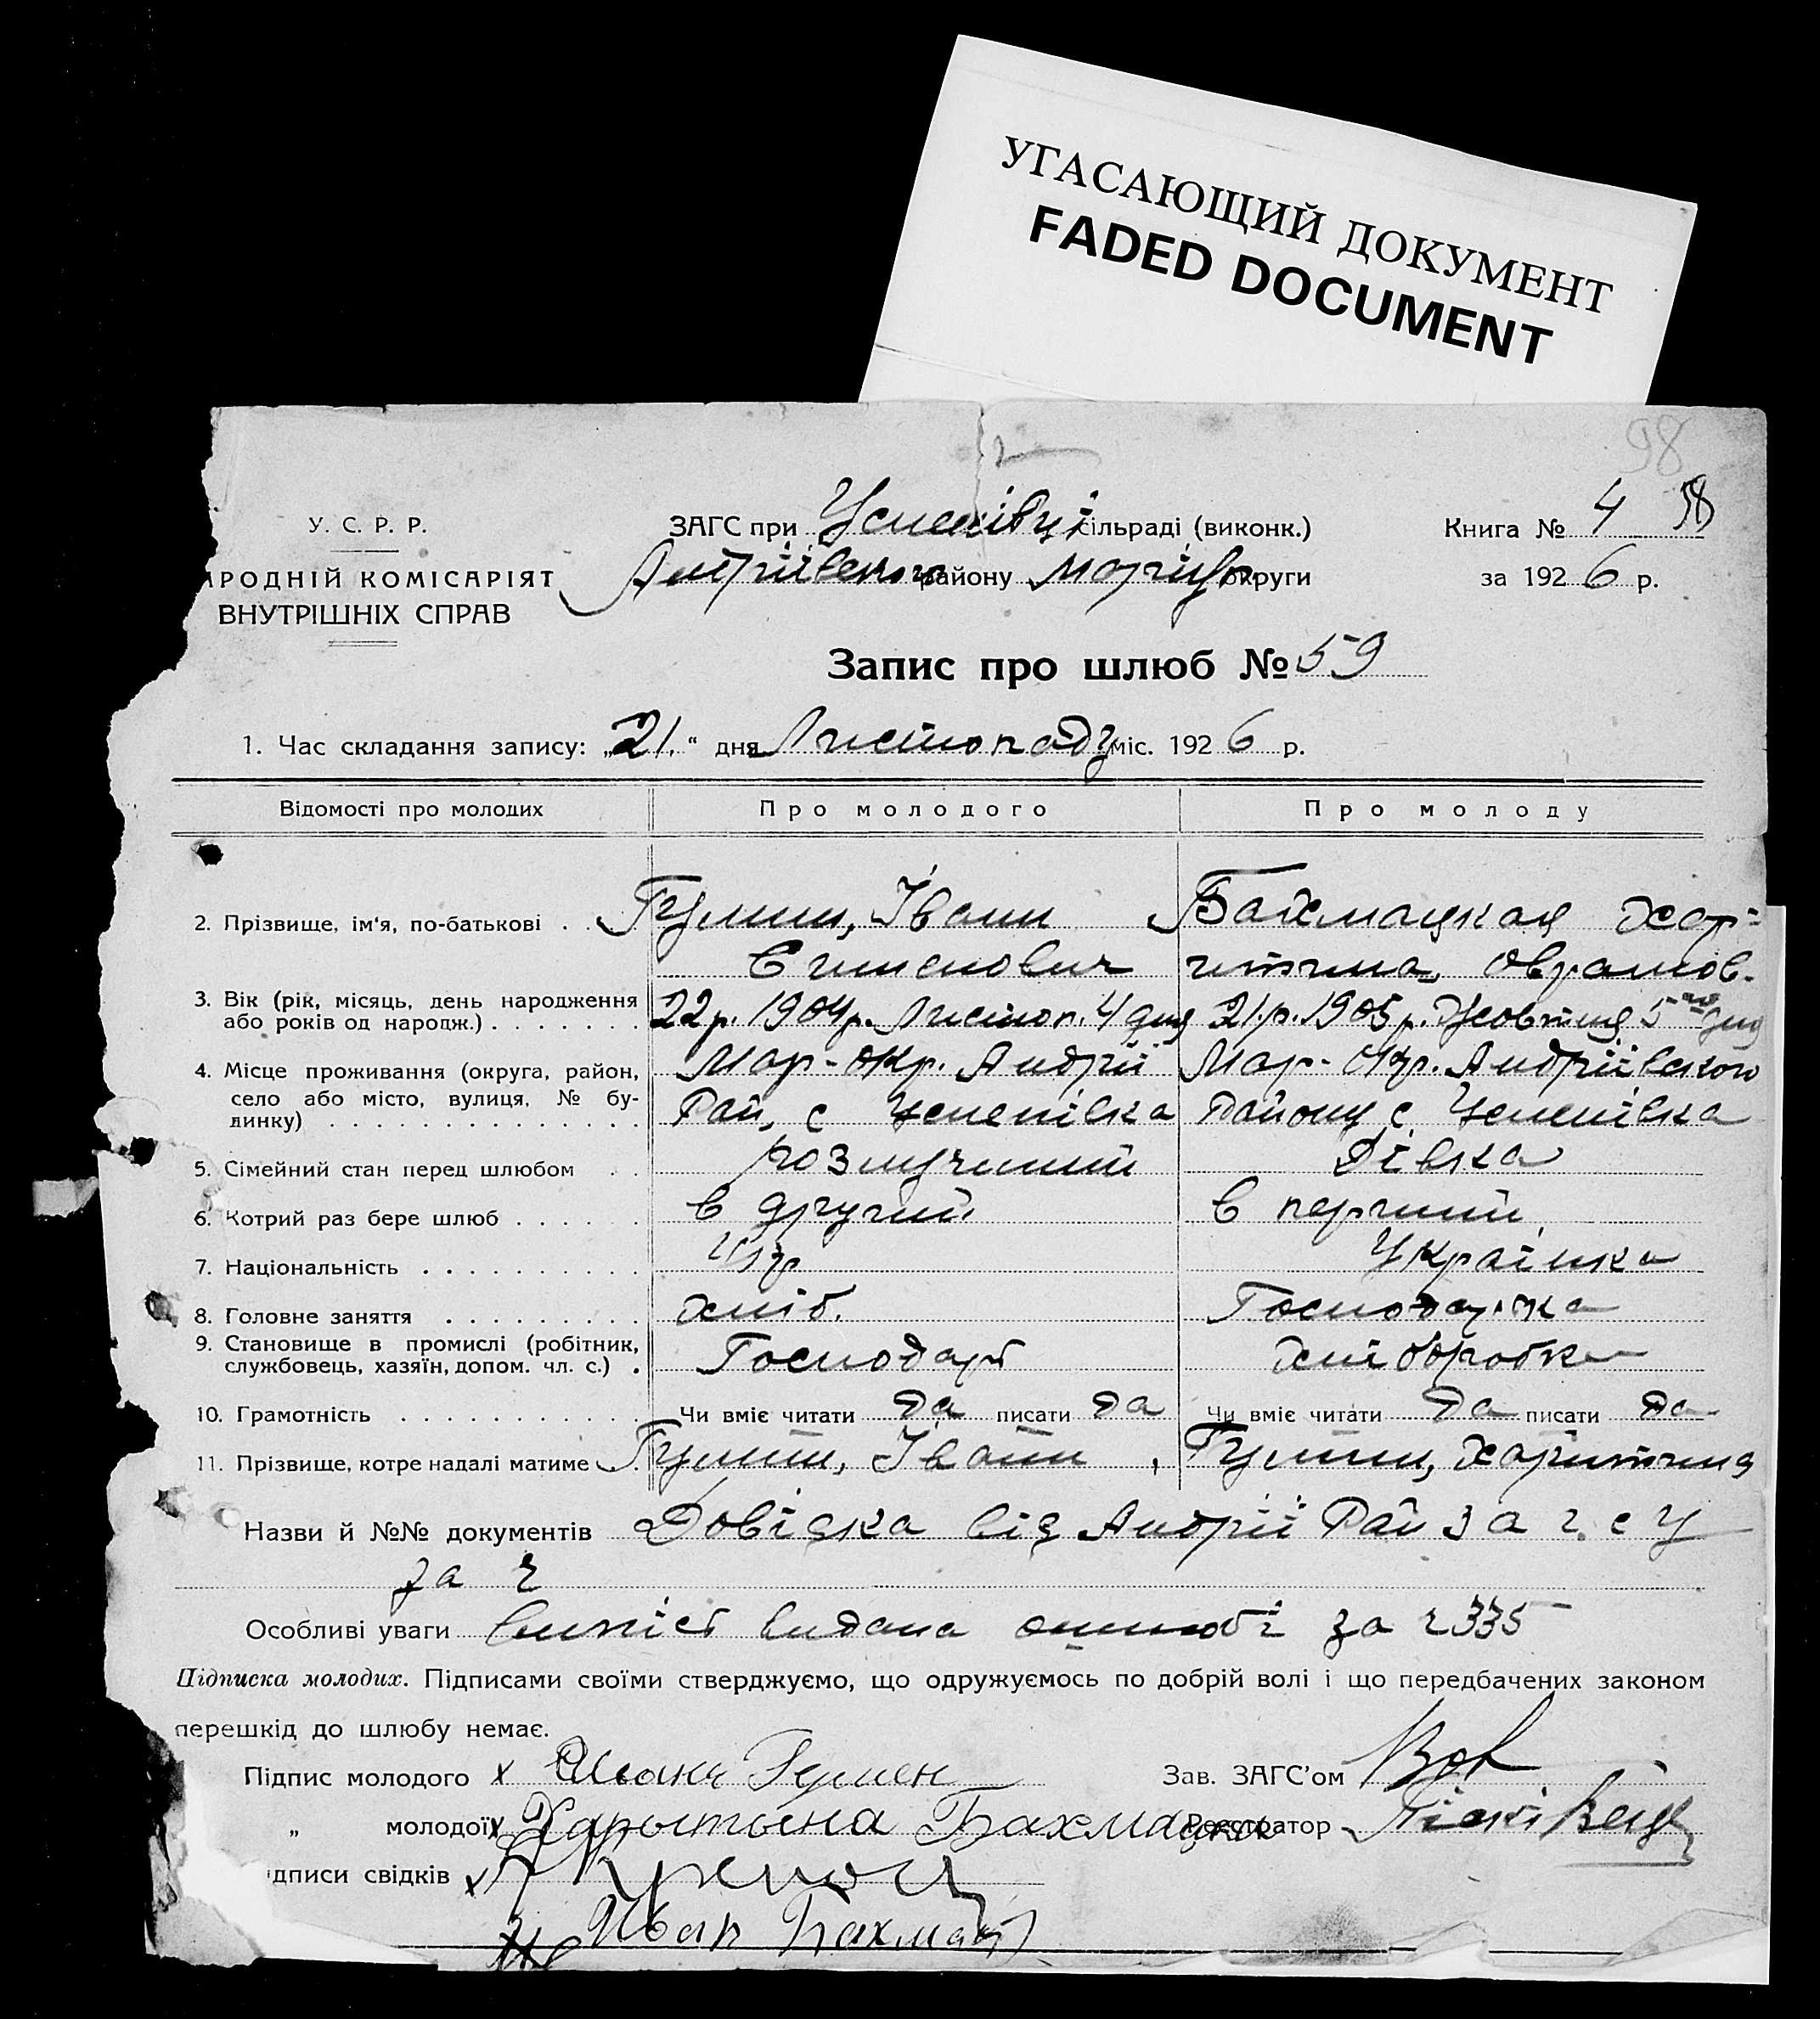 УГАСАЮЩИЙ ДОКУМЕНТ
FADED DOCUMENT
98
У. С. Р. Р.
ЗАГС при Успенівці сільраді (виконк.)
Книга № 4 58
АРОДНІЙ КОМІСАРІЯТ
ВНУТРІШНІХ СПРАВ
Андріївского району Маріуп. округи
за 1926 р.
Запис про шлюб № 59
1. Час складання запису: „21.“ дня Листопаду міс. 1926 р.
Відомості про молодих
Про молодого
Про молоду
2. Прізвище, ім'я, по-батькові . .
Гулши, Іван
Бахмацкая Хар=
итина, Аврамов.
3. Вік (рік, місяць, день народження
або років од народж.) . . . . . . .
22 р. 1904 р. Листоп. 4 дня
21. р. 1905 р. Жовтня 5 дня
4. Місце проживання (округа, район,
село або місто, вулиця, № бу-
динку) . . . . . . . . . . . . . .
Мар-окр. Андрії
Рай, с Успенівка
Мар-Окр. Андріївского
Району с Успенівка
5. Сімейний стан перед шлюбом . .
розлучений
Дівка
6. Котрий раз бере шлюб . . . . . .
в другий
в перший
7. Національність . . . . . . . . . .
Укр
Українка
8. Головне заняття . . . . . . . . .
хліб.
Господарка
9. Становище в промислі (робітник,
службовець, хазяїн, допом. чл. с.) .
Господарь
хліборобка
10. Грамотність . . . . . . . . . . .
Чи вміє читати да писати да
Чи вміє читати да писати да
11. Прізвище, котре надалі матиме . .
Іван
Харитина
Назви й №№ документів Довідка від Андрії Рай загсу
за ч
Особливі уваги випісь видана за ч 335
Підписка молодих. Підписами своїми стверджуємо, що одружуємось по добрій волі і що передбачених законом
перешкід до шлюбу немає.
Підпис молодого х
Зав. ЗАГС'ом
„ молодої х Харытына Бахмацкая
Реєстратор
ідписи свідків х
Иван Бахмат